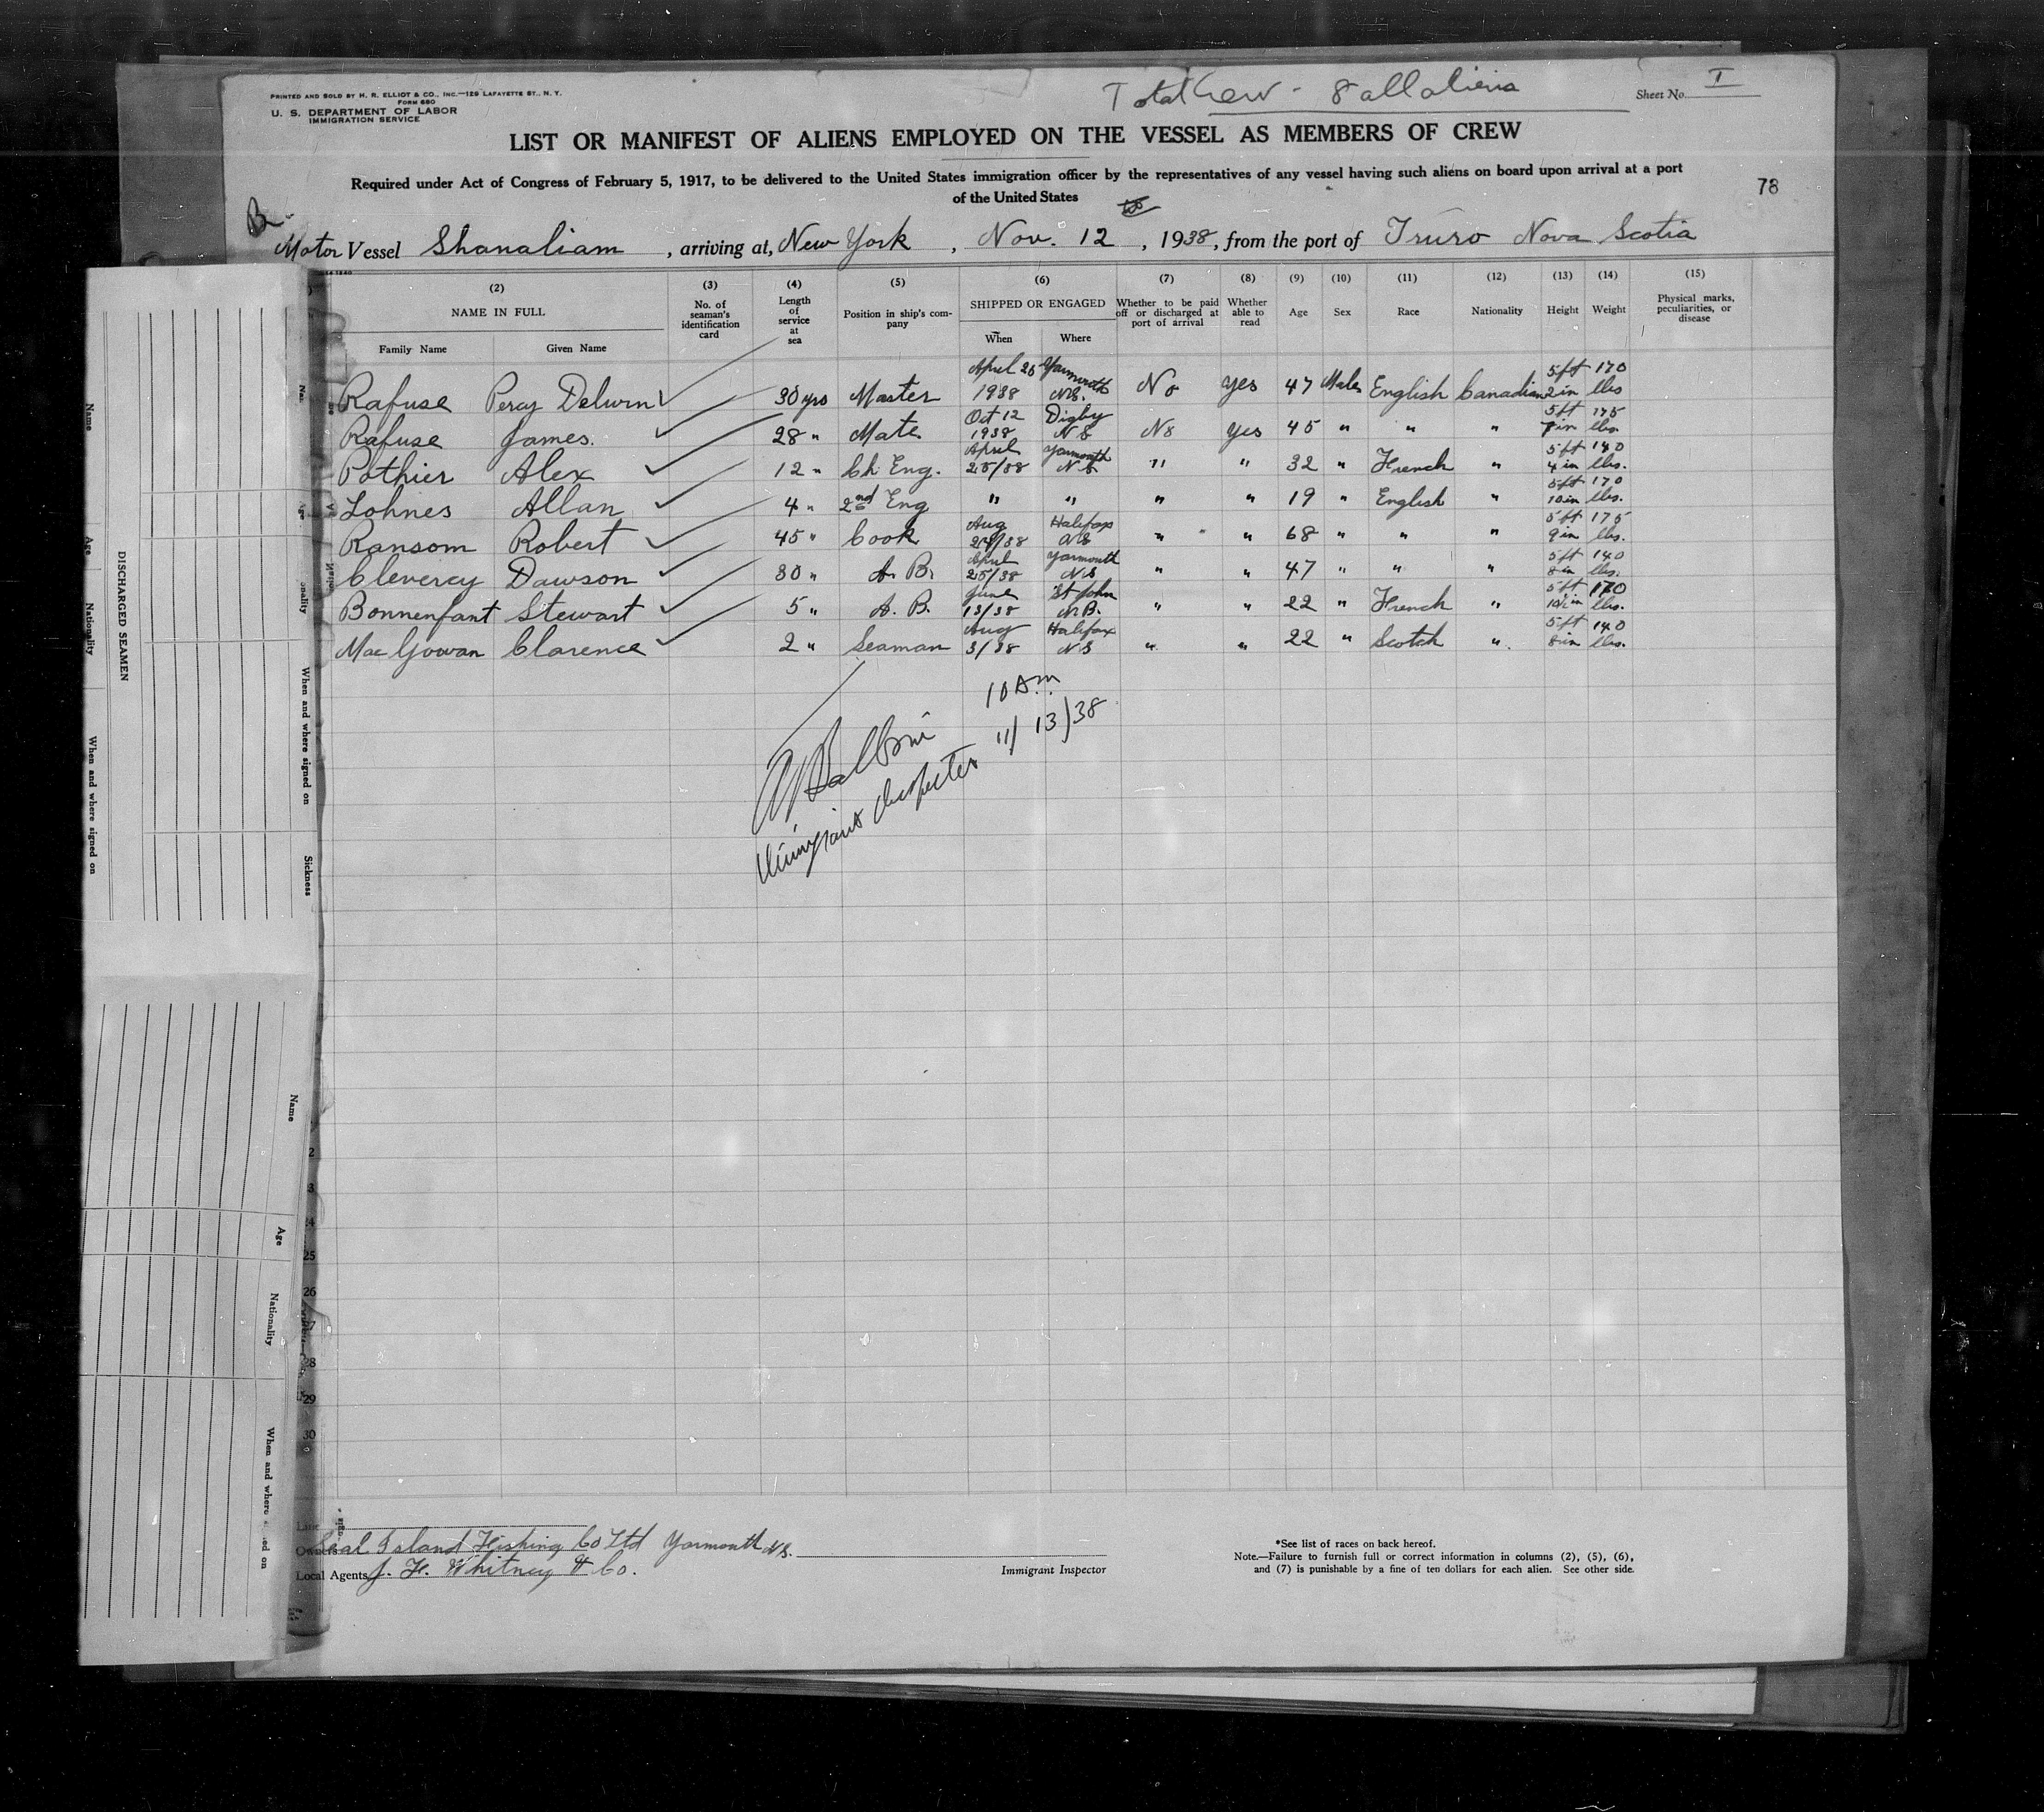 PRINTED AND SOLD BY H. R. ELLIOT & CO., INC.—129 LAFAYETTE ST., N. Y.
FORM 680
U. S. DEPARTMENT OF LABOR
IMMIGRATION SERVICE
Total Crew - 8 all aliens
Sheet No. I
LIST OR MANIFEST OF ALIENS EMPLOYED ON THE VESSEL AS MEMBERS OF CREW
Required under Act of Congress of February 5, 1917, to be delivered to the United States immigration officer by the representatives of any vessel having such aliens on board upon arrival at a port
of the United States
78
Br
Motor Vessel Shanaliam, arriving at, New York, Nov. 12, 1938, from the port of Truro Nova Scotia
(2) (3) (4) (5) (6) (7) (8) (9) (10) (11) (12) (13) (14) (15)
NAME IN FULL No. of seaman's identification card Length of service at sea Position in ship's company SHIPPED OR ENGAGED Whether to be paid off or discharged at port of arrival Whether able to read Age Sex Race Nationality Height Weight Physical marks, peculiarities, or disease
Family Name Given Name When Where
Rafuse Percy Delwin 30 yrs Master April 25 1938 Yarmouth N.S. No yes 47 Male English Canadian 5 ft 2 in 170 lbs
Rafuse James. 28 " Mate Oct 12 1938 Digby N S No yes 45 " " " 5 ft 7 in 175 lbs.
Pothier Alex 12 " Ch. Eng. April 25/38 Yarmouth N S " " 32 " French " 5 ft 4 in 140 lbs.
Lohnes Allan 4 " 2nd Eng " " " " 19 " English " 5 ft 10 in 170 lbs.
Ransom Robert 45 " Cook Aug 24/38 Halifax NS " " 68 " " " 5 ft 9 in 175 lbs.
Clevercy Dawson 30 " A. B. April 25/38 Yarmouth N.S " " 47 " " " 5 ft 8 in 140 lbs.
Bonnenfant Stewart 5 " A. B. June 13/38 St John N.B. " " 22 " French " 5 ft 10½ in 170 lbs.
Mac Gowan Clarence 2 " Seaman Aug 3/38 Halifax N S " " 22 " Scotch " 5 ft 8 in 140 lbs.
10 A.m.
11/13/38
Immigrant Inspector
DISCHARGED SEAMEN
Name
Age
Nationality
When and where signed on
When and where signed on
Sickness
Name
Age
Nationality
When and where signed on
2
3
24
25
26
27
28
29
30
Line
Owners Seal Island Fishing Co Ltd Yarmouth N.S.
Local Agents J. F. Whitney & Co.
Immigrant Inspector
*See list of races on back hereof.
Note.—Failure to furnish full or correct information in columns (2), (5), (6),
and (7) is punishable by a fine of ten dollars for each alien. See other side.